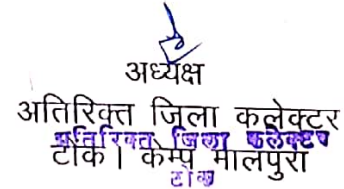 अध्यक्ष
अतिरिक्त जिला कलेक्टर
अतिरिक्त जिला कलेक्टर
टोंक। केम्प मालपुरा
टोंक